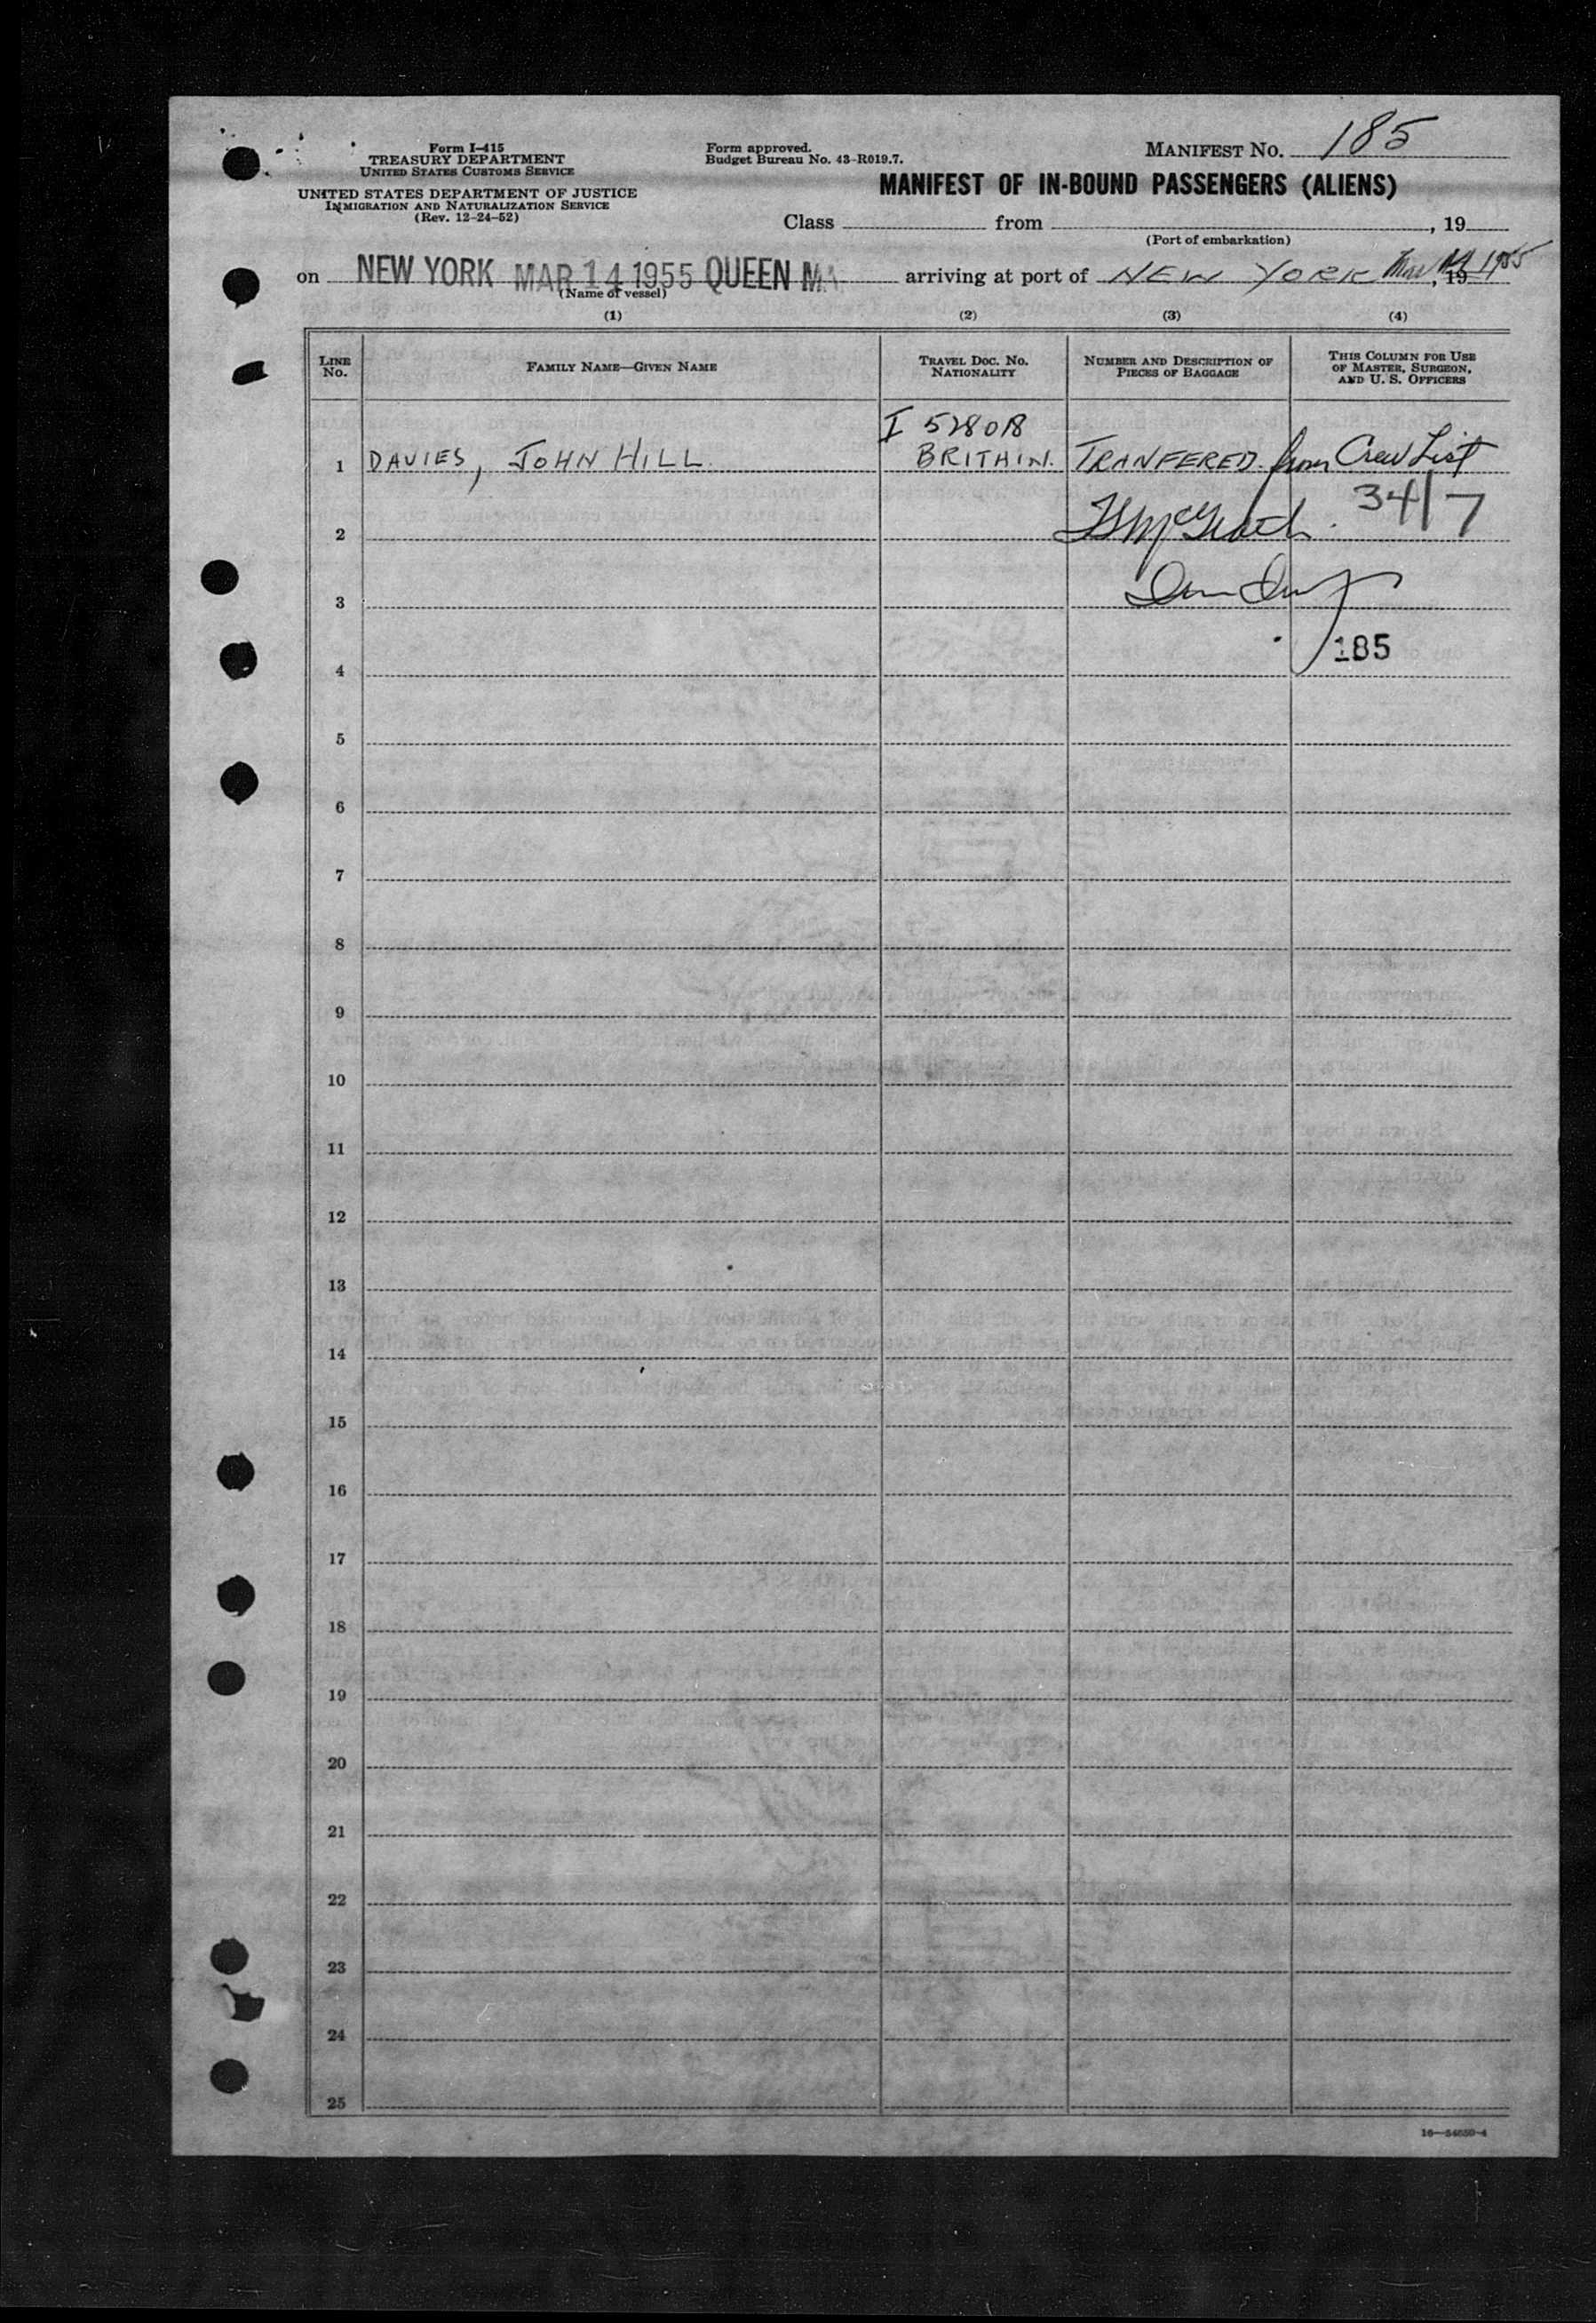 Form I-415
TREASURY DEPARTMENT
UNITED STATES CUSTOMS SERVICE
UNITED STATES DEPARTMENT OF JUSTICE
IMMIGRATION AND NATURALIZATION SERVICE
(Rev. 12-24-52)
Form approved.
Budget Bureau No. 43-R019.7.
MANIFEST NO. 185
MANIFEST OF IN-BOUND PASSENGERS (ALIENS)
Class from , 19
(Port of embarkation)
on NEW YORK MAR 14 1955 QUEEN MA arriving at port of NEW YORK Mar 14 1955 , 19
(Name of vessel)
(1) (2) (3) (4)
LINE NO. FAMILY NAME—GIVEN NAME TRAVEL DOC. NO. NATIONALITY NUMBER AND DESCRIPTION OF PIECES OF BAGGAGE THIS COLUMN FOR USE OF MASTER, SURGEON, AND U. S. OFFICERS
I 52808
1 DAVIES, JOHN HILL BRITHIN. TRANFERED from Crew List
34/7
2
3
185
4
5
6
7
8
9
10
11
12
13
14
15
16
17
18
19
20
21
22
23
24
25